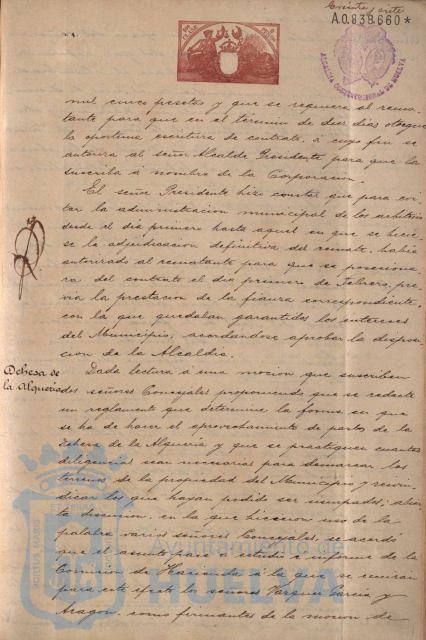 Treinta y siete
A.0.838,660*
ALCALDIA CONSTITUCIONAL DE HUELVA
mil cinco pesetas y que se requiera al rema-
tante para que en el término de diez dias otorgue
la oportuna escritura de contrato, á cuyo fin se
autoriza al señor Alcalde Presidente para que la
suscriba á nombre de la Corporacion.
El señor Presidente hizo constar que para evi-
tar la administracion municipal de los arbitrios
desde el dia primero hasta aquel en que se hicie-
se la adjudicacion definitiva del remate, habia
autorizado al rematante para que se posesiona-
ra del contrato el dia primero de Febrero, pre-
via la prestacion de la fianza correspondiente,
con la que quedaban garantidos los intereses
del Municipio, acordandose aprobar la disposi-
cion de la Alcaldia.
Dehesa de
la Alquería
Dada lectura á una mocion que suscriben
dos señores Concejales proponiendo que se redacte
un reglamento que determine la forma en que
se ha de hacer el aprovechamiento de pastos de la
Dehesa de la Alquería y que se practiquen cuantas
diligencias sean necesarias para demarcar los
terrenos de la propiedad del Municipio y reivin-
dicar los que hayan podido ser usurpados; abier-
ta discusion en la que hicieron uso de la
palabra varios señores Concejales, se acordó
que el asunto pase á estudio é informe de la
Comision de Hacienda á la que se reunirán
para este efecto los señores Vazquez Garcia y
Aragon, como firmantes de la mocion de
PORTUS MARIS
Ayuntamiento de
HUELVA